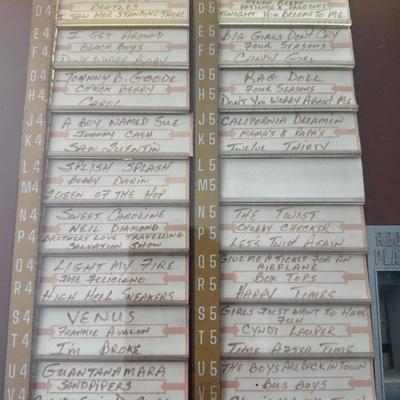 D4
BEATLES
I SAW HER STANDING THERE
E4
I GET AROUND
BEACH BOYS
F4
DON'T WORRY BABY
G4
JOHNNY B. GOODE
CHUCK BERRY
H4
CAROL
J4
A BOY NAMED SUE
JOHNNY CASH
K4
SAN QUENTIN
L4
SPLISH SPLASH
BOBBY DARIN
M4
QUEEN OF THE HOP
N4
SWEET CAROLINE
NEIL DIAMOND
P4
BROTHERS LOVE TRAVELLING
SALVATION SHOW
Q4
LIGHT MY FIRE
JOSE FELICIANO
R4
HIGH HEEL SNEAKERS
S4
VENUS
FRANKIE AVALON
T4
I'M BROKE
U4
GUANTANAMARA
SANDPIPERS
V4
D5
TONIGHT YOU BELONG TO ME
E5
BIG GIRLS DON'T CRY
FOUR SEASONS
F5
CANDY GIRL
G5
RAG DOLL
FOUR SEASONS
H5
DON'T YOU WORRY ABOUT ME
J5
CALIFORNIA DREAMIN
MAMA'S & PAPA'S
K5
TWELVE THIRTY
L5
M5
N5
THE TWIST
CHUBBY CHECKER
P5
LETS TWIST AGAIN
Q5
GIVE ME A TICKET FOR AN
AIRPLANE
BOX TOPS
R5
HAPPY TIMES
S5
GIRLS JUST WANT TO HAVE
FUN
CYNDI LAUPER
T5
TIME AFTER TIME
U5
THE BOYS ARE BACK IN TOWN
BUS BOYS
V5
REC
PLA